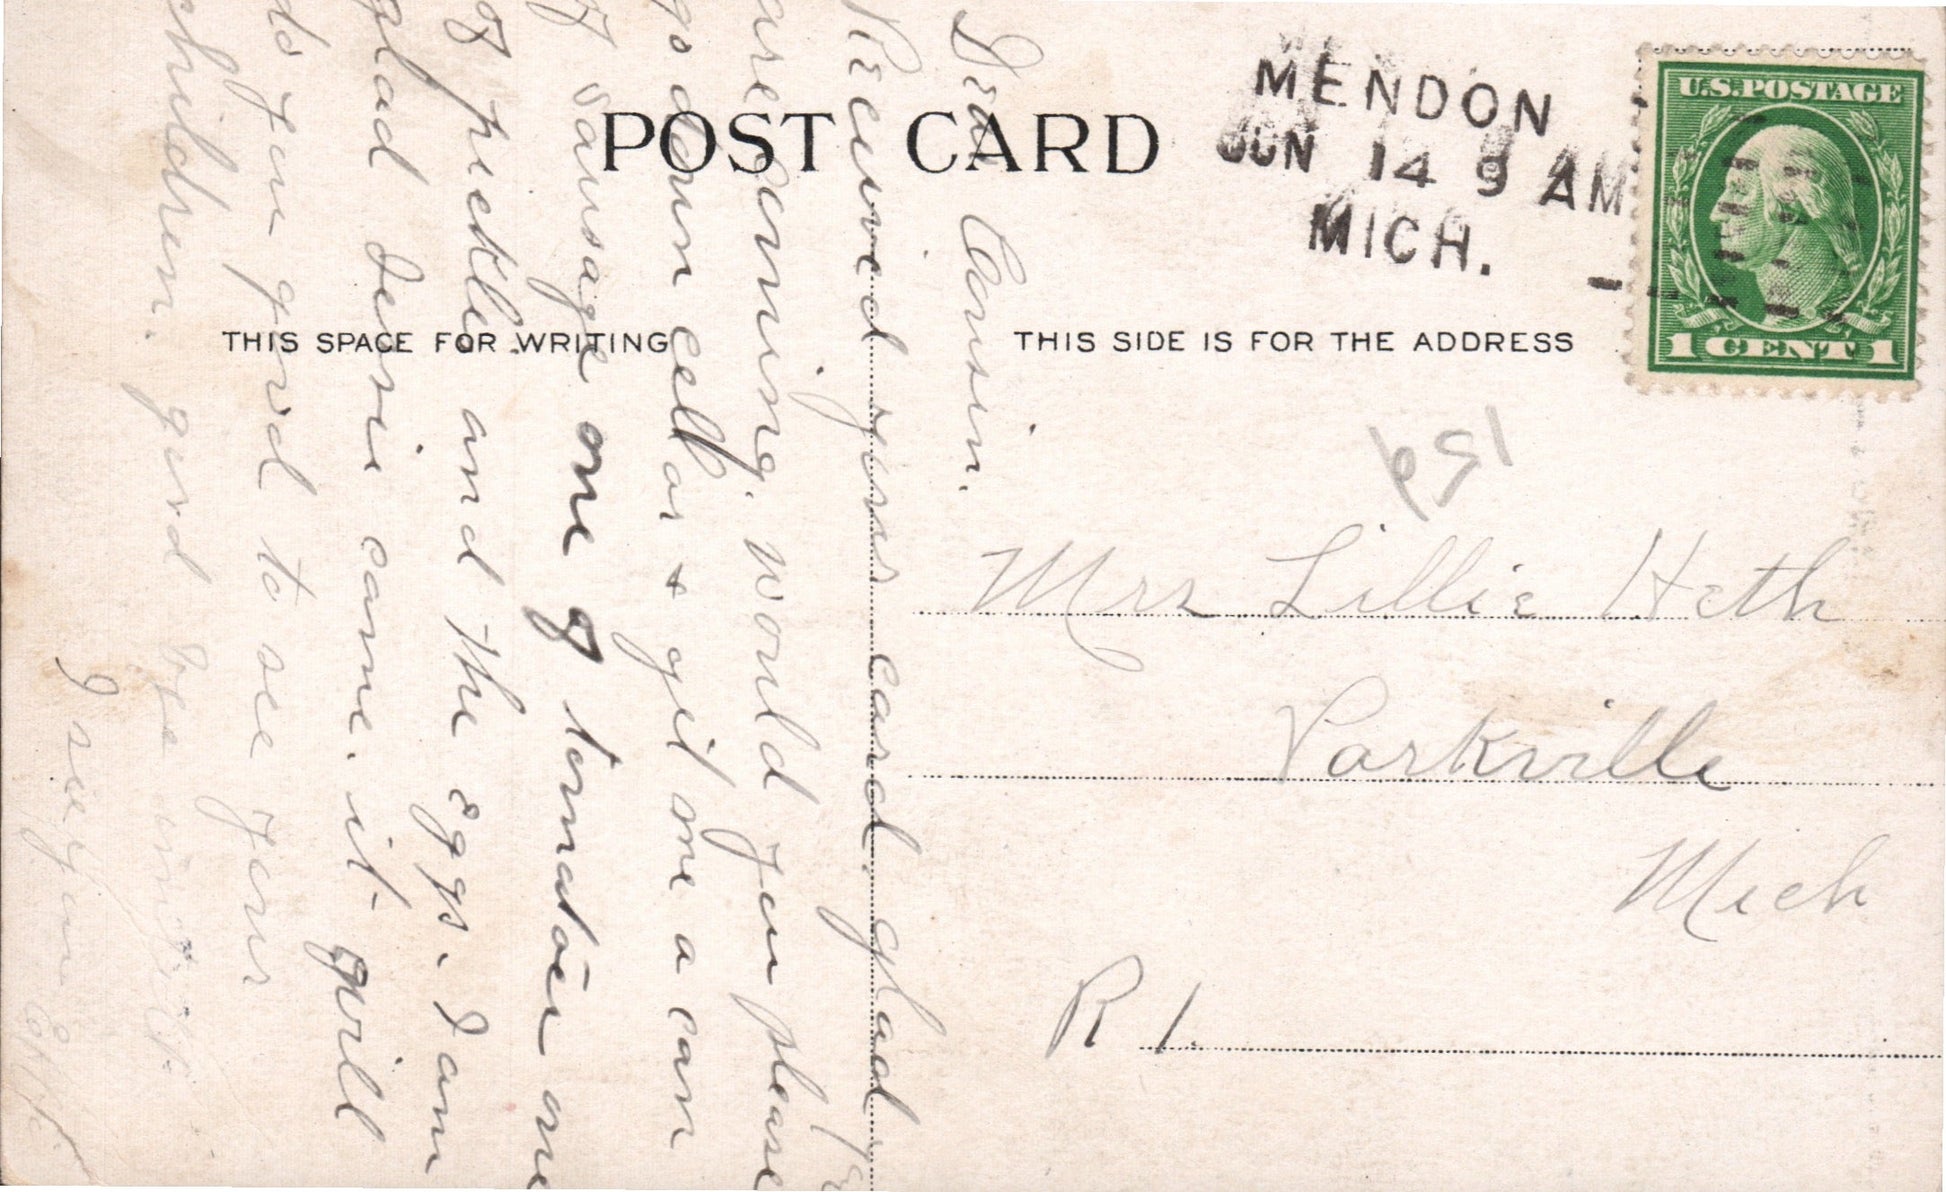 POST CARD
MENDON
JUN 14 9 AM
MICH.
U.S. POSTAGE
1 CENT 1
THIS SPACE FOR WRITING
THIS SIDE IS FOR THE ADDRESS
159
Mrs Lillie Heth
Parkville
Mich
R 1.
Dear Cousin.
Received your card. glad
are coming. would you please
go down cellar & get me a can
of sausage one of tomatoes one
of pickles and the eggs. I am
glad Jessie came. it will
do you good to see your
children. good bye until
I see you Effie